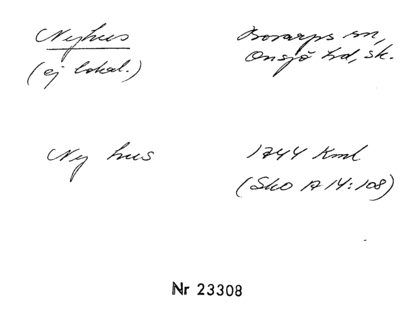 Nyhus
(ej lokal.)
Bosarps sn,
Onsjö hd, sk.
Ny hus
1744 Kml
(Sko A 14:108)
Nr 23308